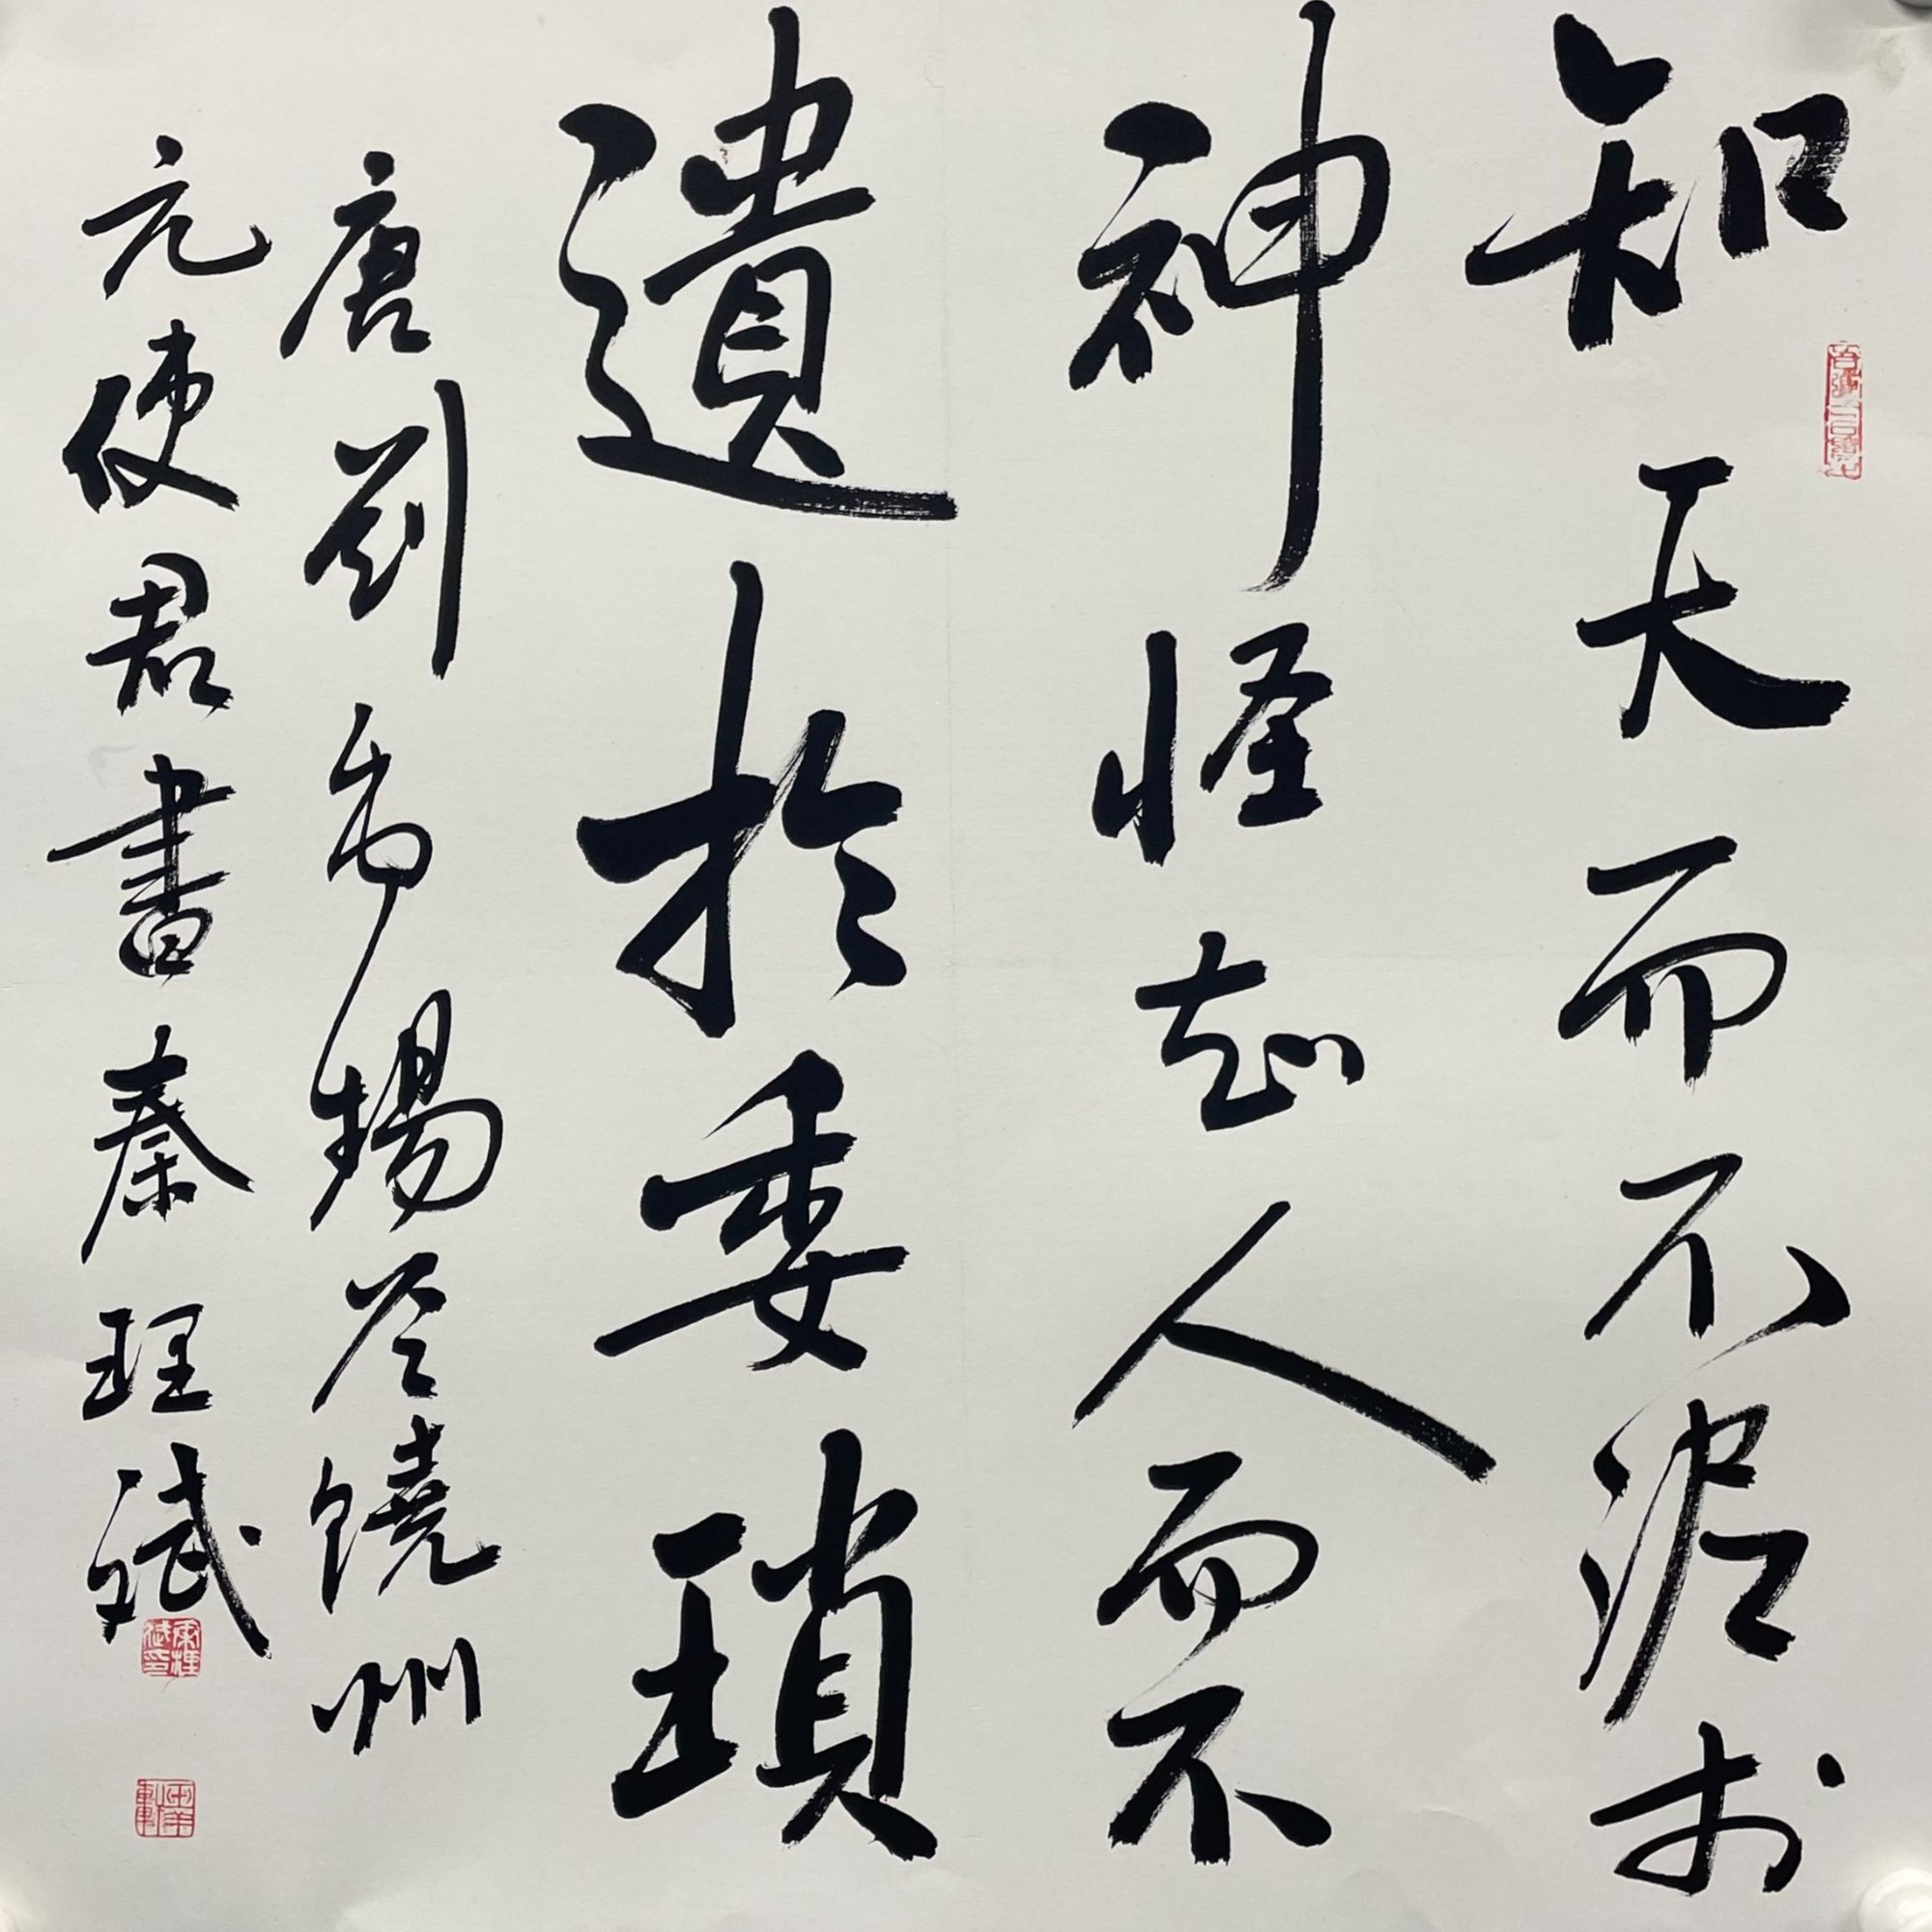 知天而不泥於
神怪知人而不
遺於委瑣
唐劉禹錫答饒州
元使君書秦理斌